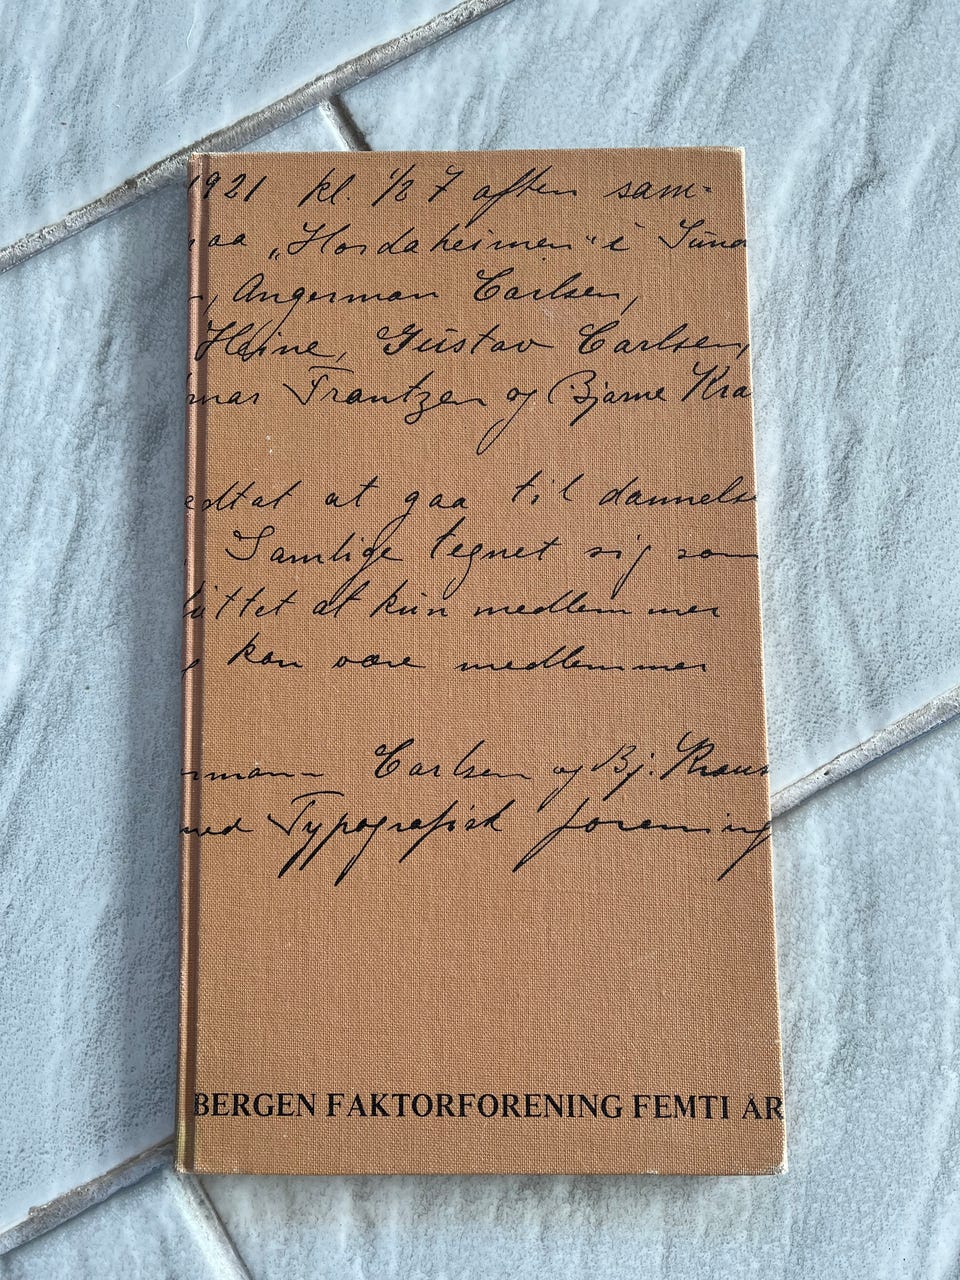 1921 kl. 1/2 7 aften sam=
aa „Hordaheimen“ i Sund
, Angerman Carlsen,
Heine, Gustav Carlsen,
mas Frantzen og Bjarne Kra
edtat at gaa til dannelse
Samtlige tegnet sig som
luttet at kun medlemmer
kan være medlemmer
rman Carlsen og Bj. Kraus
med Typografisk forening
BERGEN FAKTORFORENING FEMTI ÅR